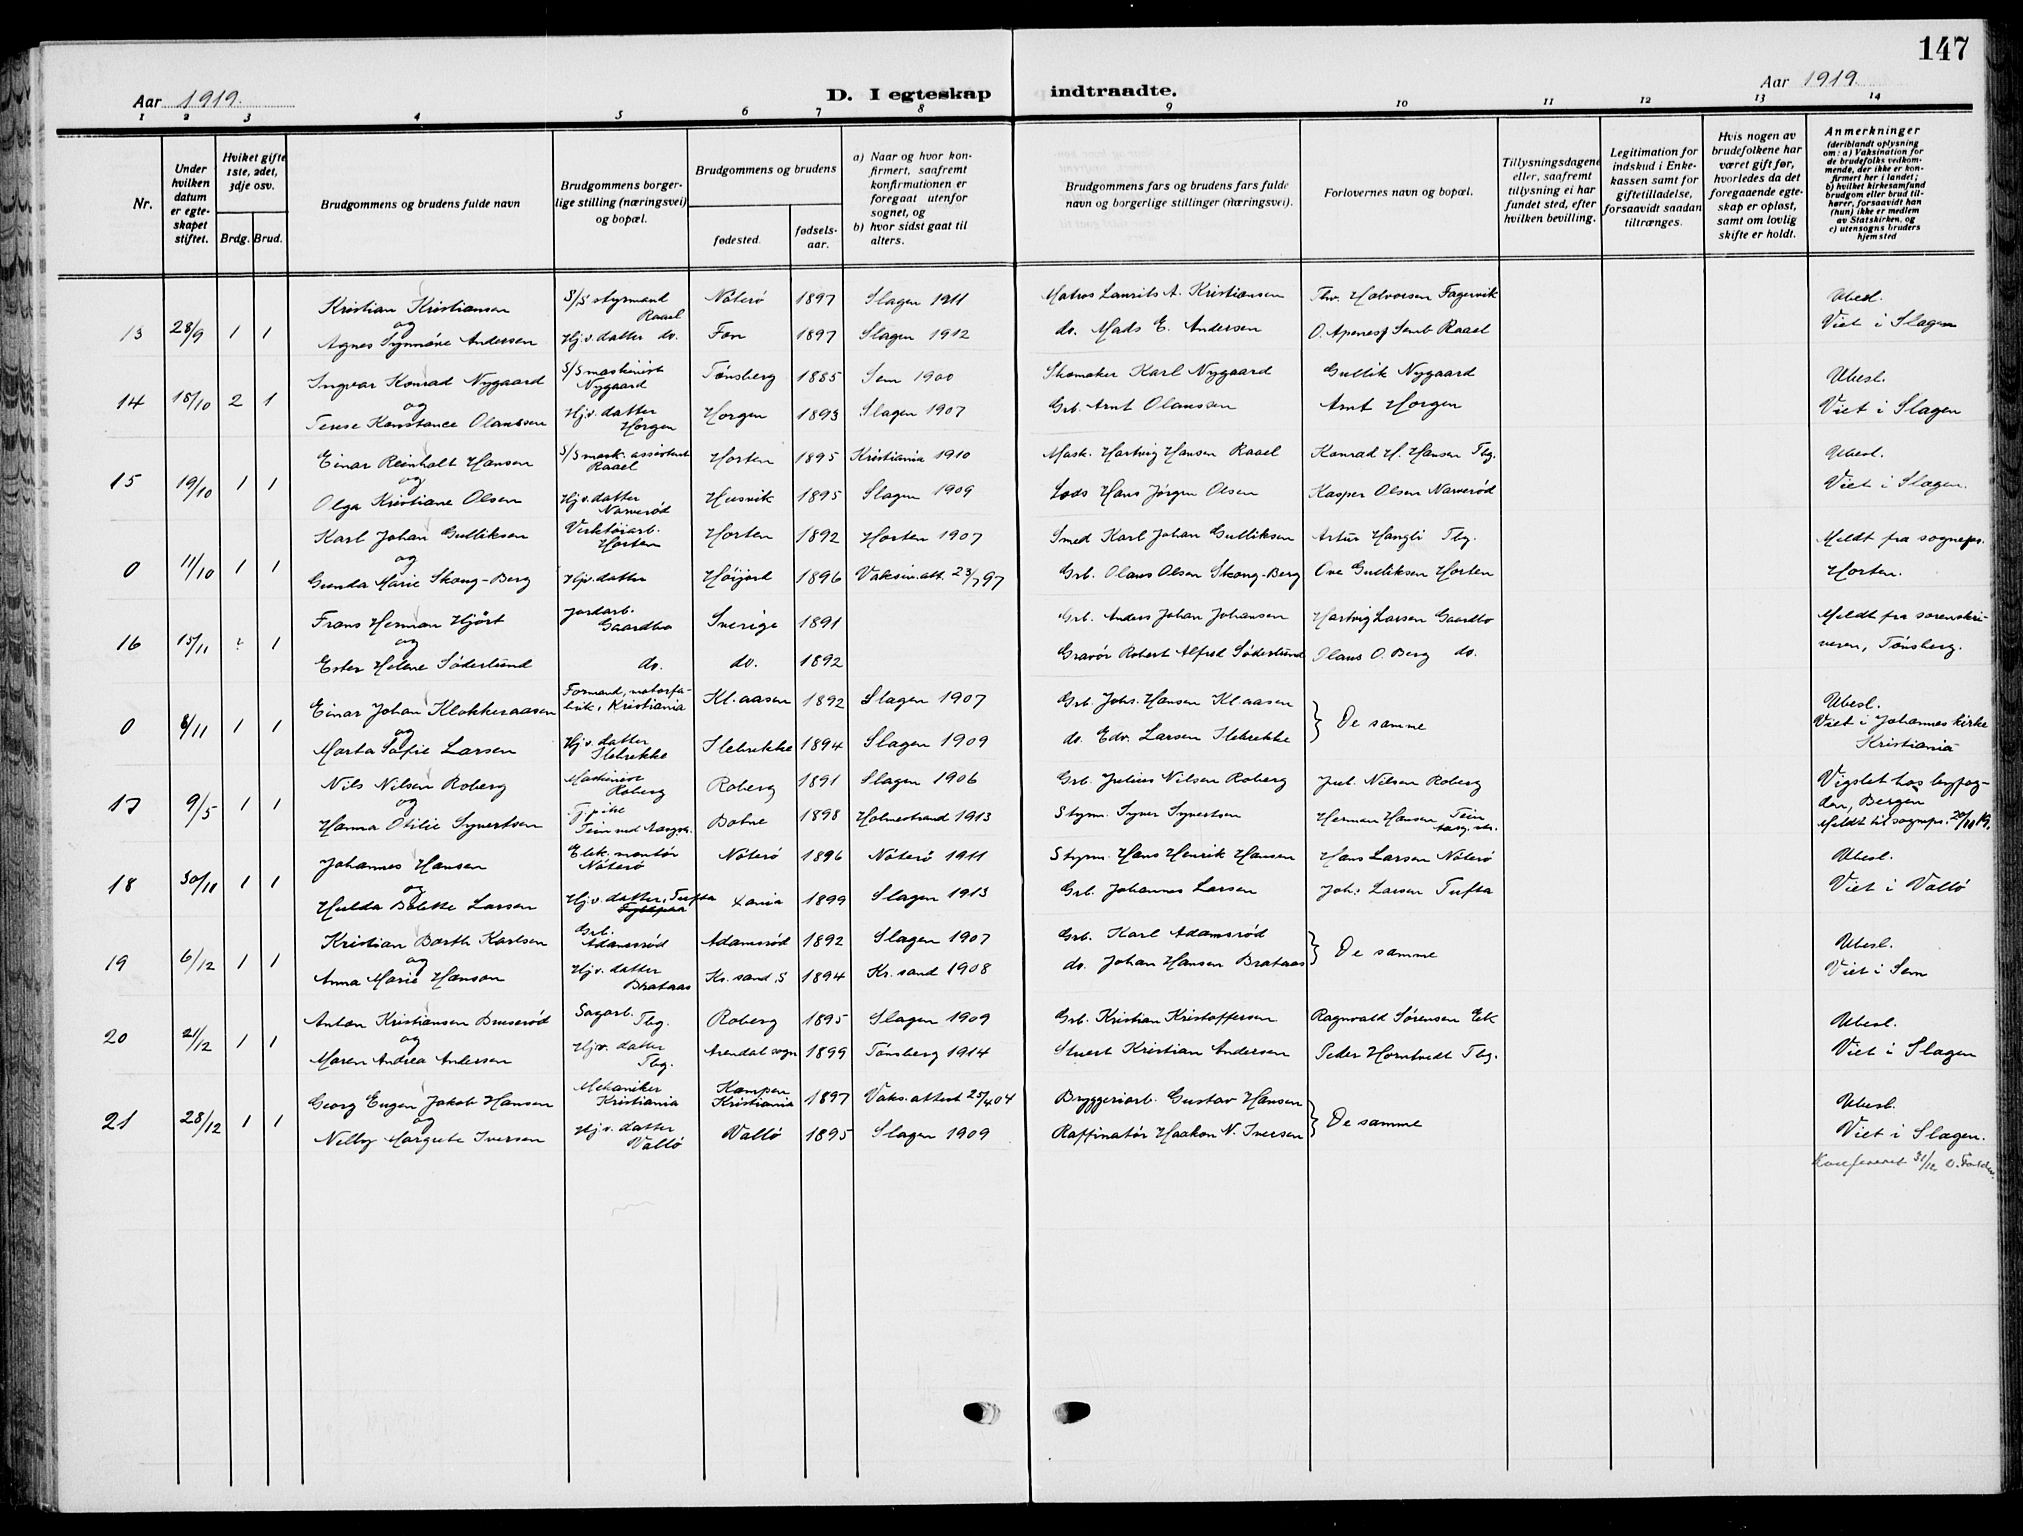 147
Aar 1919.
D. I egteskap indtraadte.
Aar 1919.
1 2 3 4 5 6 7 8 9 10 11 12 13 14
Nr.
Under hvilken datum er egteskapet stiftet.
Hvilket gifte 1ste, 2det, 3dje osv.
Brdg. Brud.
Brudgommens og brudens fulde navn
Brudgommens borgerlige stilling (næringsvei) og bopæl.
Brudgommens og brudens
fødested. fødselsaar.
a) Naar og hvor konfirmert, saafremt konfirmationen er foregaat utenfor sognet, og
b) hvor sidst gaat til alters.
Brudgommens fars og brudens fars fulde navn og borgerlige stillinger (næringsvei).
Forlovernes navn og bopæl.
Tillysningsdagene eller, saafremt tillysning ei har fundet sted, efter hvilken bevilling.
Legitimation for indskud i Enkekassen samt for giftetilladelse, forsaavidt saadan tiltrænges.
Hvis nogen av brudefolkene har været gift før, hvorledes da det foregaaende egteskap er opløst, samt om lovlig skifte er holdt.
Anmerkninger (deriblandt oplysning om: a) Vaksination for de brudefolks vedkommende, der ikke er konfirmert her i landet; b) hvilket kirkesamfund brudgom eller brud tilhører, forsaavidt han (hun) ikke er medlem av Statskirken, og c) utensogns bruders hjemsted
Kristian Kristiansen S/S styrmand Raael Nøterø 1897 Slagen 1911 Matros Laurits A. Kristiansen Thv. Halvorsen Fagervik Ubesl.
13 28/9 1 1 og
Agnes Synnøve Andersen Hj.v. datter do. Fon 1897 Slagen 1912 do. Mads E. Andersen O. Apenesf Semb Raael Viet i Slagen
Ingvar Konrad Nygaard S/S maskinist Nygaard Tønsberg 1885 Sem 1900 Skomaker Karl Nygaard Gullik Nygaard Ubesl.
14 18/10 2 1 og
Terese Konstance Olaussen Hj.v. datter Horgen Horgen 1893 Slagen 1907 Grb. Arnt Olaussen Arnt Horgen Viet i Slagen
Einar Reinholt Hansen S/S mask. assistent Raael Horten 1895 Kristiania 1910 Mask. Hartvig Hansen Raael Konrad H. Hansen Tbg. Ubesl.
15 19/10 1 1 og
Olga Kristiane Olsen Hj.v. datter Narverød Husvik 1895 Slagen 1909 Lods Hans Jørgen Olsen Kasper Olsen Narverød Viet i Slagen.
Karl Johan Gulliksen Verktøiarb. Horten Horten 1892 Horten 1907 Smed Karl Johan Gulliksen Artur Hangli Tbg. Meldt fra sognepr.
0 11/10 1 1 og
Gunda Marie Skaug-Berg Hj.v. datter Høijord 1896 Vaksin. att. 23/7 97 Grb. Olaus Olsen Skaug-Berg Ove Gulliksen Horten Horten.
Frans Herman Hjørt Jordarb. Gaardbo Sverige 1891 Grb. Anders Johan Johansen Hartvig Larsen Gaardbo Meldt fra sorenskri-
16 15/11 1 og
Ester Helene Söderlund do. do. 1892 Gravör Robert Alfred Söderlund Olaus O. Berg do. veren, Tønsberg.
Einar Johan Klokkeraasen Formand, motorfabrik, Kristiania Kl.aasen 1892 Slagen 1907 Grb. Johs. Hansen Kl.aasen De samme Ubesl.
0 8/11 1 1 og Viet i Johannes kirke
Marta Sofie Larsen Hj.v. datter Ilebrekke Ilebrekke 1894 Slagen 1909 do. Edv. Larsen Ilebrekke Kristiania
Nils Nilsen Roberg Maskinist Roberg Roberg 1891 Slagen 1906 Grb. Julius Nilsen Roberg Jul. Nilsen Roberg Vigslet hos byfog-
17 9/5 1 1 og den, Bergen
Hanna Otilie Syvertsen Tj.pike Botne 1898 Holmestrand 1913 Styrm. Syver Syvertsen Herman Hansen Tein Meldt til sognepr. 20/10 19.
Johannes Hansen Elek. montør Nøterø Nøterø 1896 Nøterø 1911 Styrm. Hans Henrik Hansen Hans Larsen Nøterø Ubesl.
18 30/11 1 1 og
Hulda Bolette Larsen Hj.v. datter, Tufta Xania 1899 Slagen 1913 Grb. Johannes Larsen Joh. Larsen Tufta Viet i Vallø
Kristian Barth Karlsen Grb. Adamsrød Adamsrød 1892 Slagen 1907 Grb. Karl Adamsrød De samme Ubesl.
19 6/12 1 1 og
Anna Marie Hanson Hj.v. datter Brataas Kr.sand, S 1894 Kr.sand 1908 do. Johan Hansen Brataas Viet i Sem
Anton Kristiansen Bruserød Sagarb. Tbg. Roberg 1895 Slagen 1909 Grb. Kristian Kristoffersen Ragnvald Sørensen Eik Ubesl.
20 21/12 1 1 og
Maren Andrea Andersen Hj.v. datter Tbg. Arendal sogn 1899 Tønsberg 1914 Stuert Kristian Andersen Peder Horntvedt Tbg. Viet i Slagen
Georg Eugen Jakob Hansen Mekaniker Kristiania Kampen Kristiania 1897 Vaks. attest 25/4 04 Bryggeriarb. Gustav Hansen De samme Ubesl.
21 28/12 1 1 og
Nelly Margrete Iversen Hj.v. datter Vallø Vallø 1895 Slagen 1909 Raffinatør Haakon N. Iversen Viet i Slagen.
Konfereret 31/12